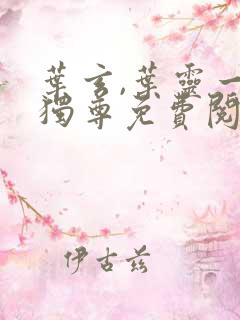 葉玄,葉靈一
獨尊免費閱
伊古茲